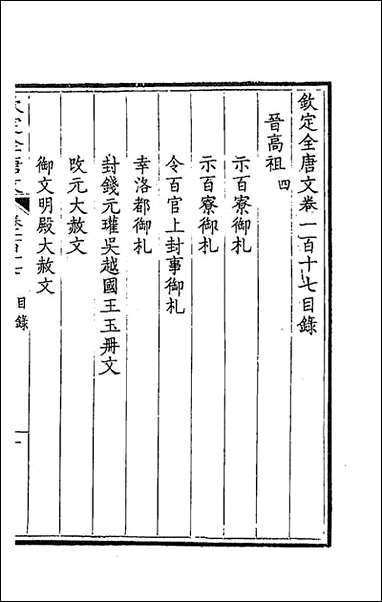 欽定全唐文卷一百十七目錄
晉高祖四
示百寮御札
示百寮御札
令百官上封事御札
幸洛都御札
封錢元瓘吳越國王玉冊文
改元大赦文
御文明殿大赦文
目錄